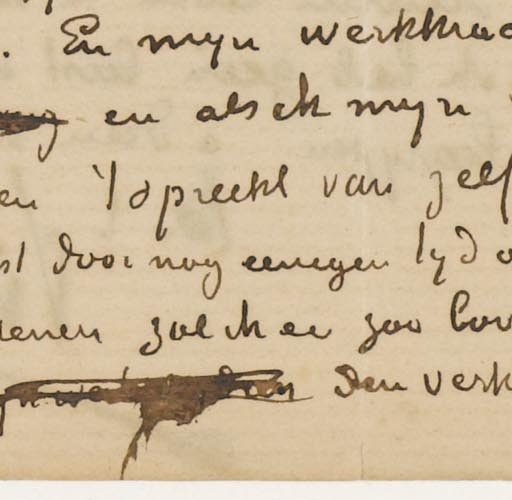 . En mijn werkkrac
en als ik mijn
en 't spreekt van zelf
st door nog eenigen tijd o
ienen zal ik er zoo bov
den verk